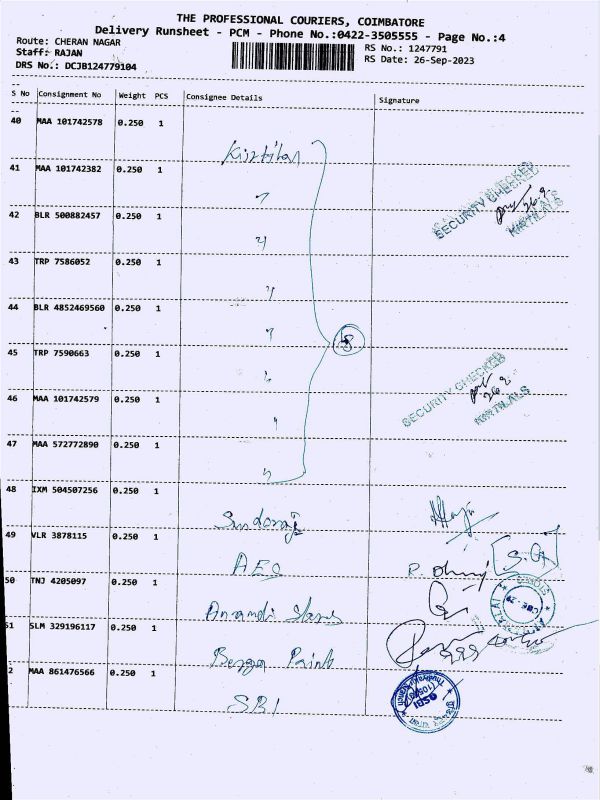 THE PROFESSIONAL COURIERS, COIMBATORE
Delivery Runsheet - PCM - Phone No.:0422-3505555 - Page No.:4
Route: CHERAN NAGAR
RS No.: 1247791
Staff: RAJAN
RS Date: 26-Sep-2023
DRS No.: DCJB124779104
S No Consignment No Weight PCS Consignee Details Signature
40 MAA 101742578 0.250 1
Kirtilal
41 MAA 101742382 0.250 1
SECURITY CHECKED
26.9
KIRTILALS
42 BLR 500882457 0.250 1
43 TRP 7586052 0.250 1
44 BLR 4852469560 0.250 1
8
45 TRP 7590663 0.250 1
SECURITY CHECKED
26.9
KIRTILALS
46 MAA 101742579 0.250 1
47 MAA 572772890 0.250 1
48 IXM 504507256 0.250 1
49 VLR 3878115 0.250 1
50 TNJ 4205097 0.250 1
51 SLM 329196117 0.250 1
2 MAA 861476566 0.250 1
SBI